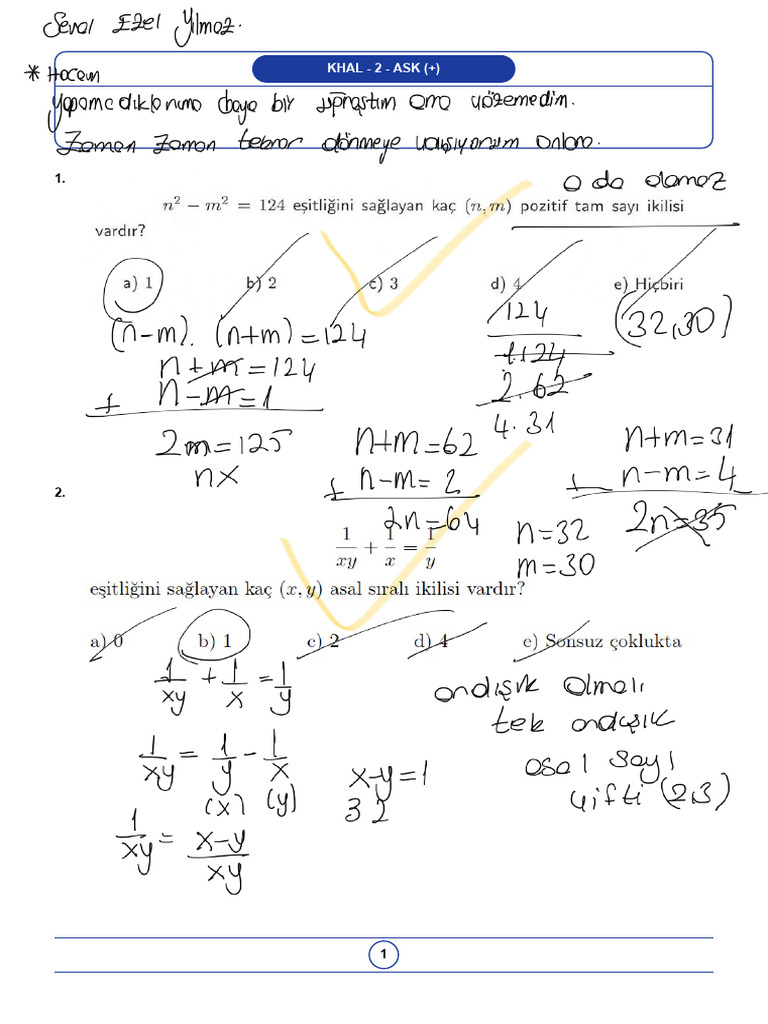 Seval Ezel Yılmaz.
KHAL - 2 - ASK (+)
* Hocam
yapamadıklarıma baya bir uğraştım ama çözemedim.
Zaman zaman tekrar dönmeye çalışıyorum onlara.
1.
0 da olamaz
n² − m² = 124 eşitliğini sağlayan kaç (n, m) pozitif tam sayı ikilisi
vardır?
a) 1 b) 2 c) 3 d) 4 e) Hiçbiri
(n-m). (n+m) = 124
124
(32,30)
n+m = 124
1.124
+ n-m = 1
2.62
4.31
2m = 125
nx
n+m = 62
+ n-m = 2
2n = 64
n+m = 31
+ n-m = 4
2n = 35
n = 32
m = 30
2.
1/xy + 1/x = 1/y
eşitliğini sağlayan kaç (x, y) asal sıralı ikilisi vardır?
a) 0 b) 1 c) 2 d) 4 e) Sonsuz çoklukta
1/xy + 1/x = 1/y
1/xy = 1/y - 1/x
(x) (y)
1/xy = x-y/xy
x-y = 1
3 2
ardışık olmalı
tek ardışık
asal sayı
çifti (2,3)
1